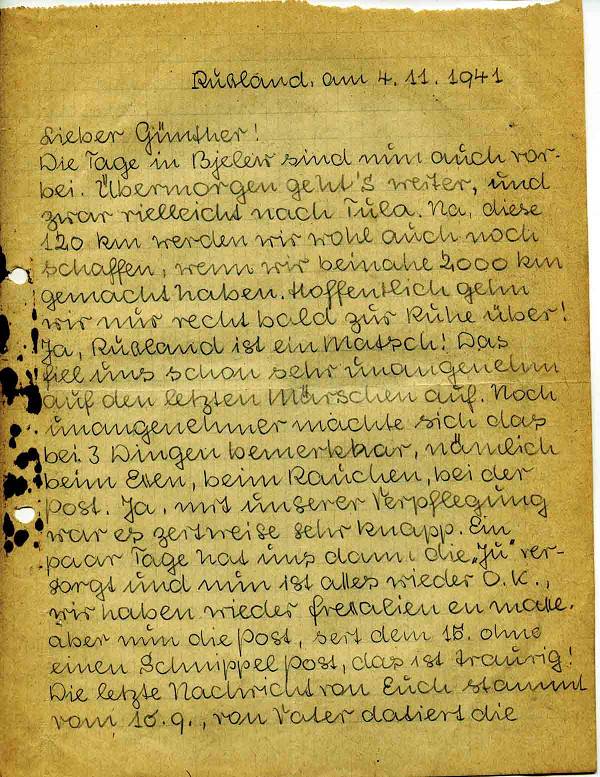 Rußland, am 4.11.1941
Lieber Günther!
Die Tage in Bjelew sind nun auch vor-
bei. Übermorgen geht's weiter, und
zwar vielleicht nach Tula. Na, diese
120 km werden wir wohl auch noch
schaffen, wenn wir beinahe 2000 km
gemacht haben. Hoffentlich gehn
wir nur recht bald zur Ruhe über!
Ja, Rußland ist ein Matsch! Das
fiel uns schon sehr unangenehm
auf den letzten Märschen auf. Noch
unangenehmer machte sich das
bei 3 Dingen bemerkbar, nämlich
beim Essen, beim Rauchen, bei der
Post. Ja, mit unserer Verpflegung
war es zeitweise sehr knapp. Ein
paar Tage hat uns dann die „Ju" ver-
sorgt und nun ist alles wieder O.K.,
wir haben wieder Fressalien en masse.
Aber nun die Post, seit dem 15. ohne
einen Schnippel Post, das ist traurig!
Die letzte Nachricht von Euch stammt
vom 10.9., von Vater datiert die